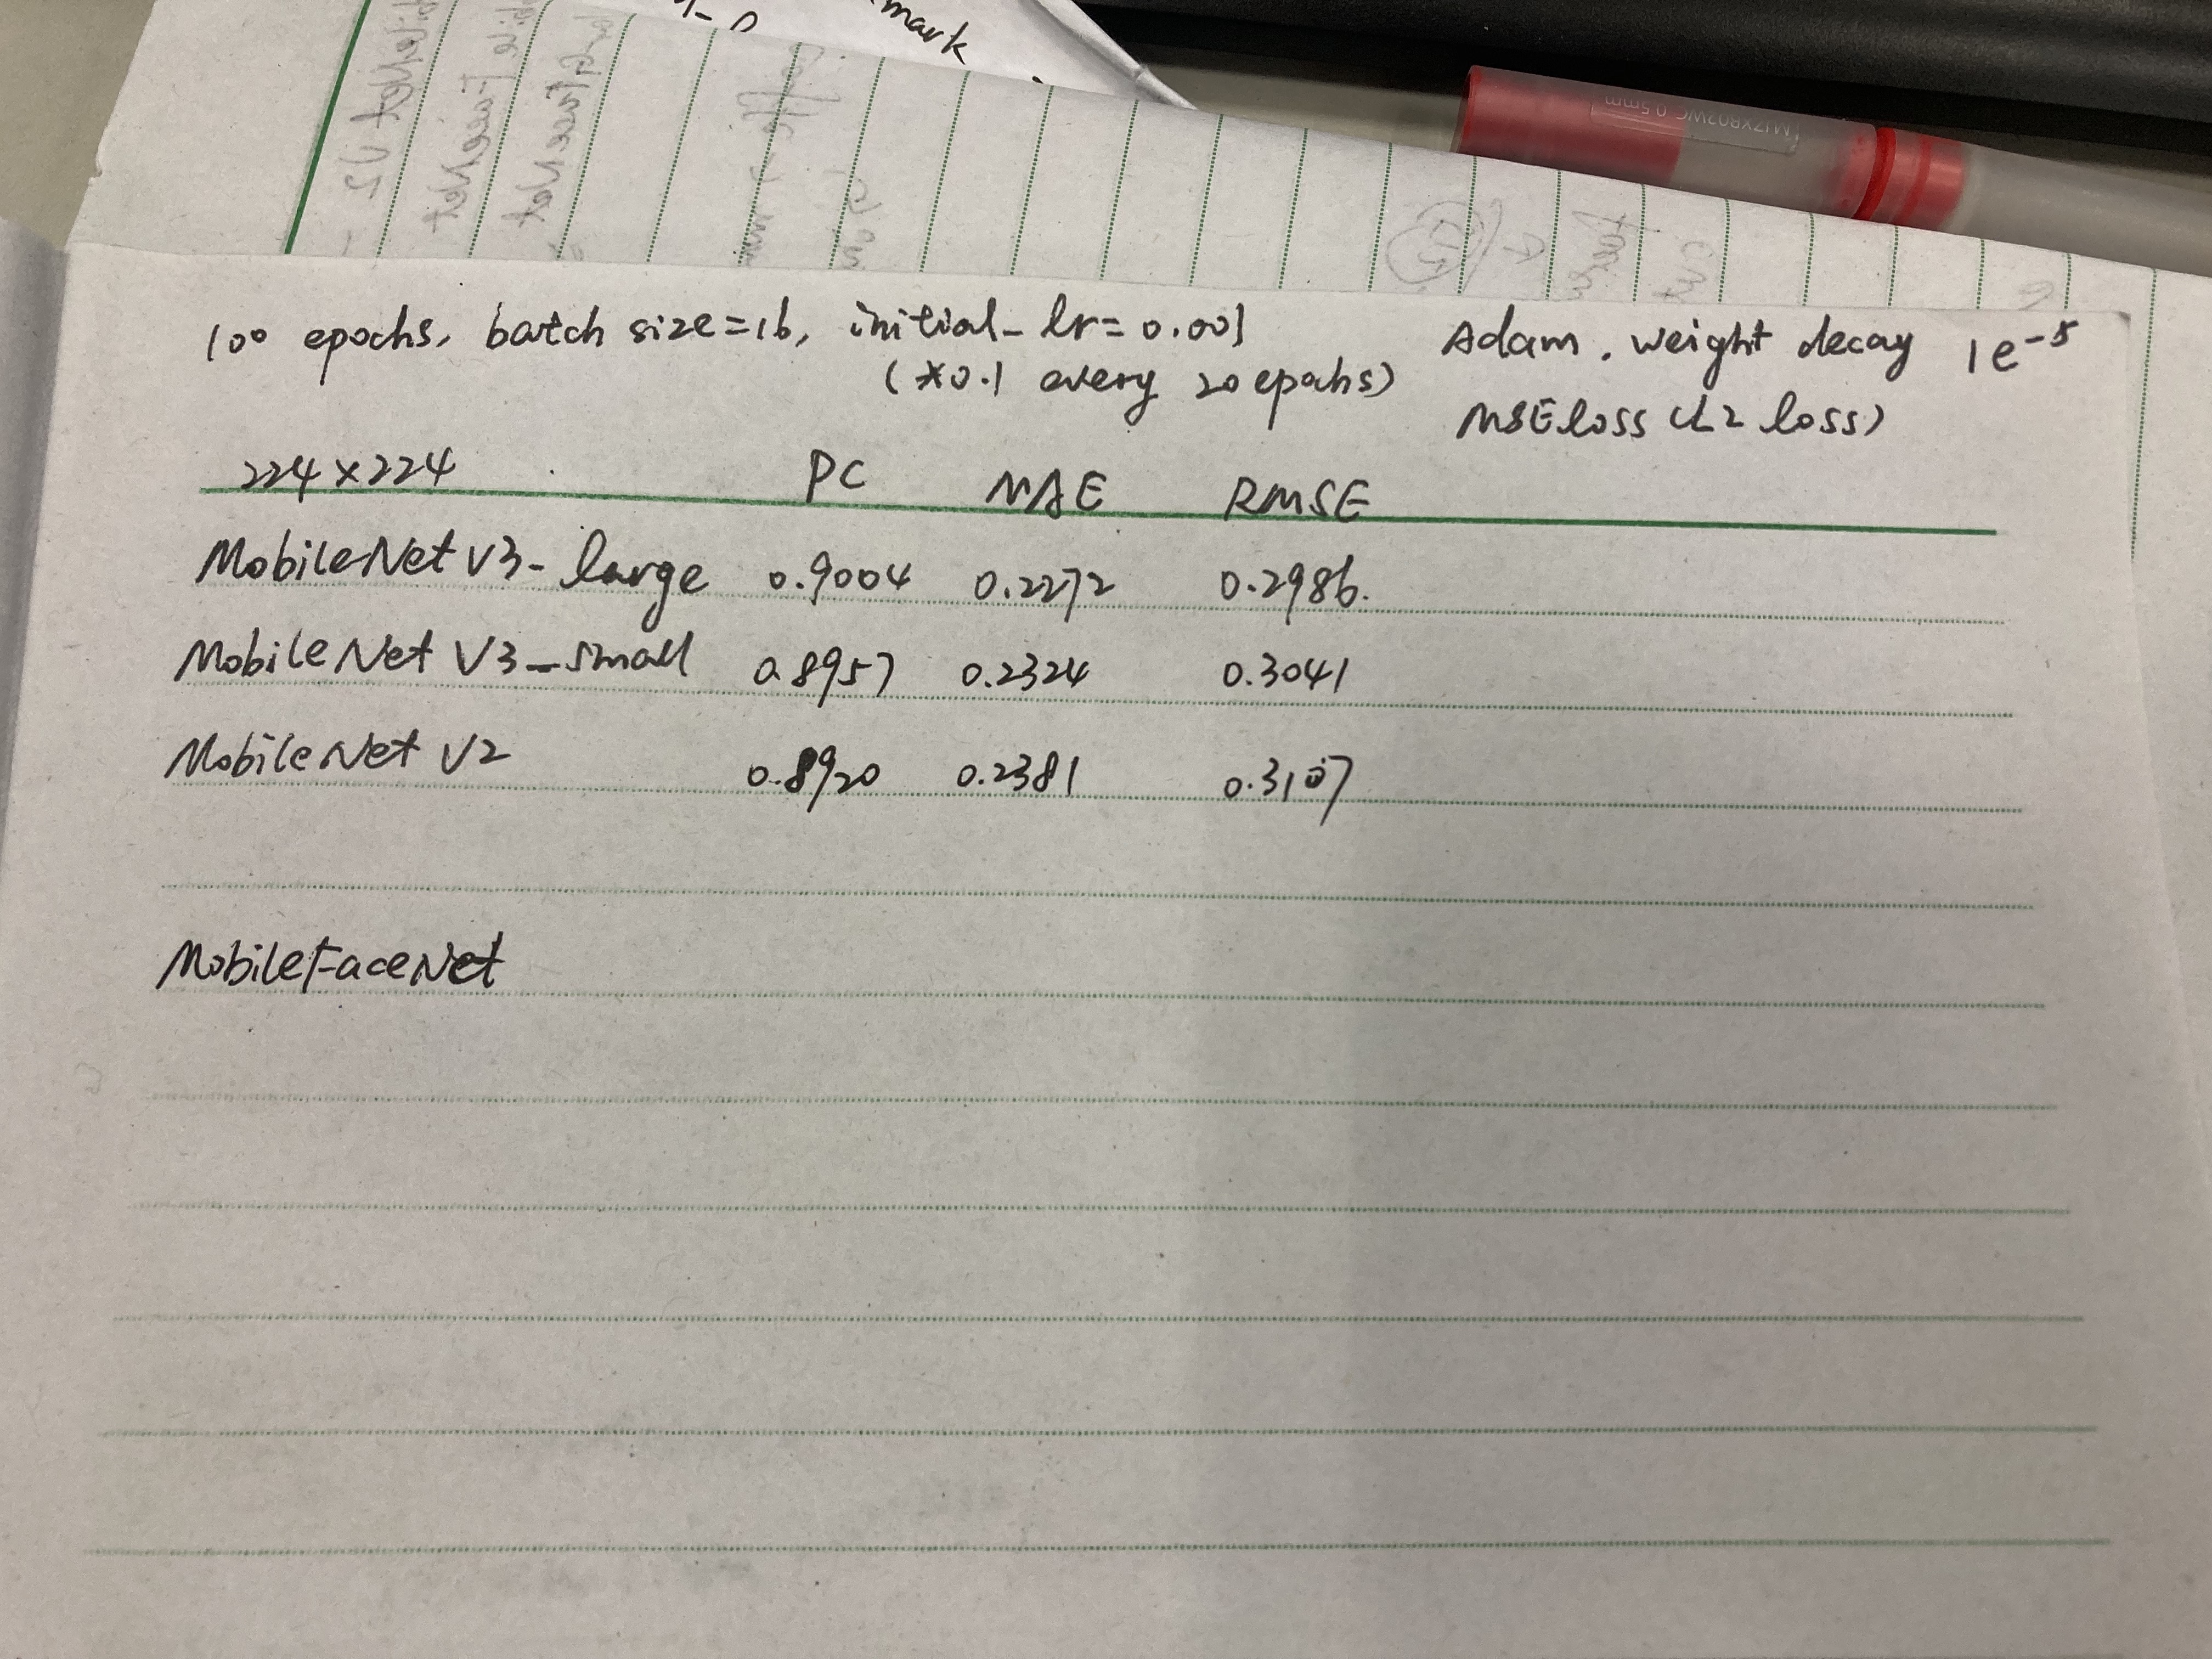 mark
100 epochs, batch size=16, initial_lr=0.001
(*0.1 every 20 epochs)
Adam. weight decay 1e-5
MSEloss (L2 loss)
224×224 PC MAE RMSE
MobileNet V3-large 0.9004 0.2272 0.2986.
MobileNet V3_small 0.8957 0.2324 0.3041
MobileNet V2 0.8920 0.2381 0.3107
MobileFaceNet